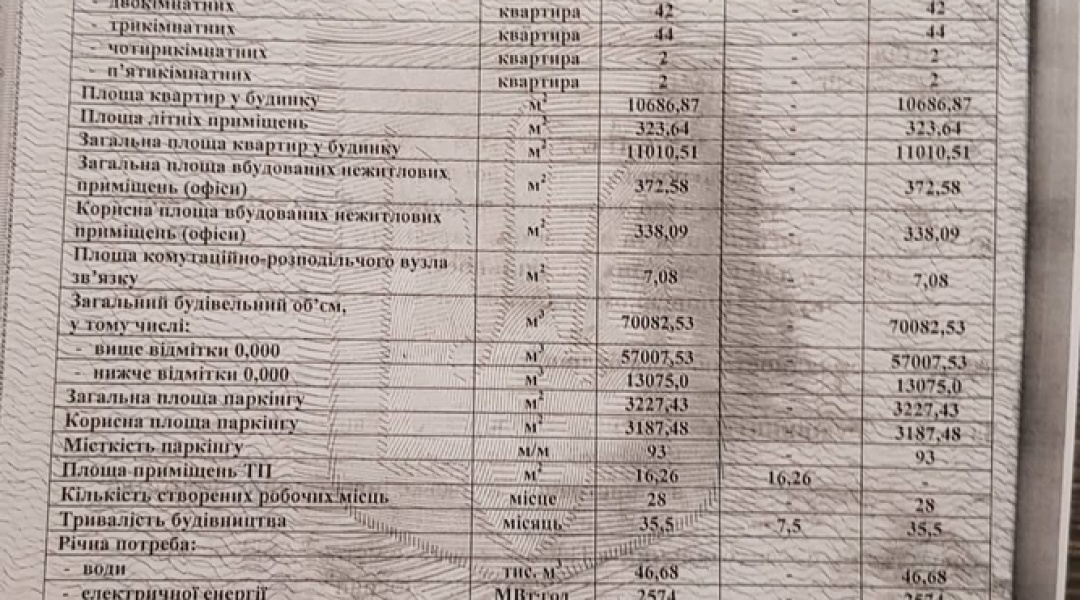 - двокімнатних квартира 42 - 42
- трикімнатних квартира 44 - 44
- чотирикімнатних квартира 2 - 2
- п’ятикімнатних квартира 2 - 2
Площа квартир у будинку м² 10686,87 - 10686,87
Площа літніх приміщень м² 323,64 - 323,64
Загальна площа квартир у будинку м² 11010,51 - 11010,51
Загальна площа вбудованих нежитлових
приміщень (офіси) м² 372,58 - 372,58
Корисна площа вбудованих нежитлових
приміщень (офіси) м² 338,09 - 338,09
Площа комутаційно-розподільчого вузла
зв’язку м² 7,08 - 7,08
Загальний будівельний об’єм,
у тому числі: м³ 70082,53 - 70082,53
- вище відмітки 0,000 м³ 57007,53 - 57007,53
- нижче відмітки 0,000 м³ 13075,0 - 13075,0
Загальна площа паркінгу м² 3227,43 - 3227,43
Корисна площа паркінгу м² 3187,48 - 3187,48
Місткість паркінгу м/м 93 - 93
Площа приміщень ТП м² 16,26 16,26 -
Кількість створених робочих місць місце 28 - 28
Тривалість будівництва місяць 35,5 7,5 35,5
Річна потреба:
- води тис. м³ 46,68 - 46,68
- електричної енергії МВт·год 2574 - 2574